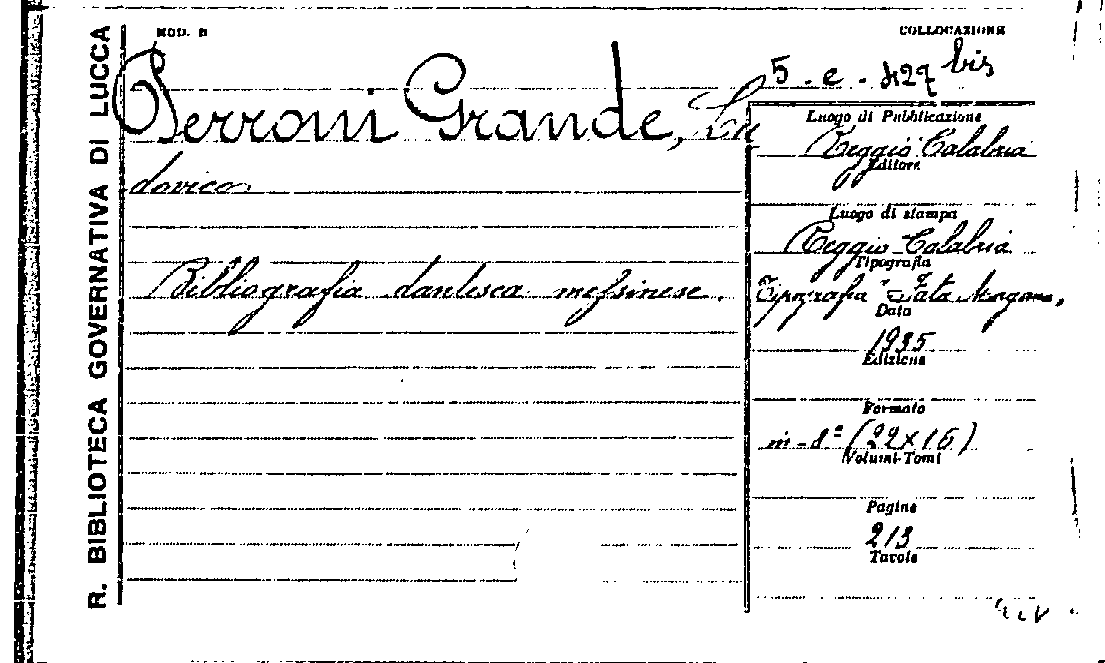 R. BIBLIOTECA GOVERNATIVA DI LUCCA
MOD. B
COLLOCAZIONE
5 - e - 427 bis
Perroni Grande, Lu
dovico
Bibliografia dantesca messinese.
Luogo di Pubblicazione
Reggio Calabria
Editore
Luogo di stampa
Reggio Calabria
Tipografia
Tipografia "Fata Morgana,
Data
1935
Edizione
Formato
in-8º (22x16)
Volumi-Tomi
Pagine
213
Tavole